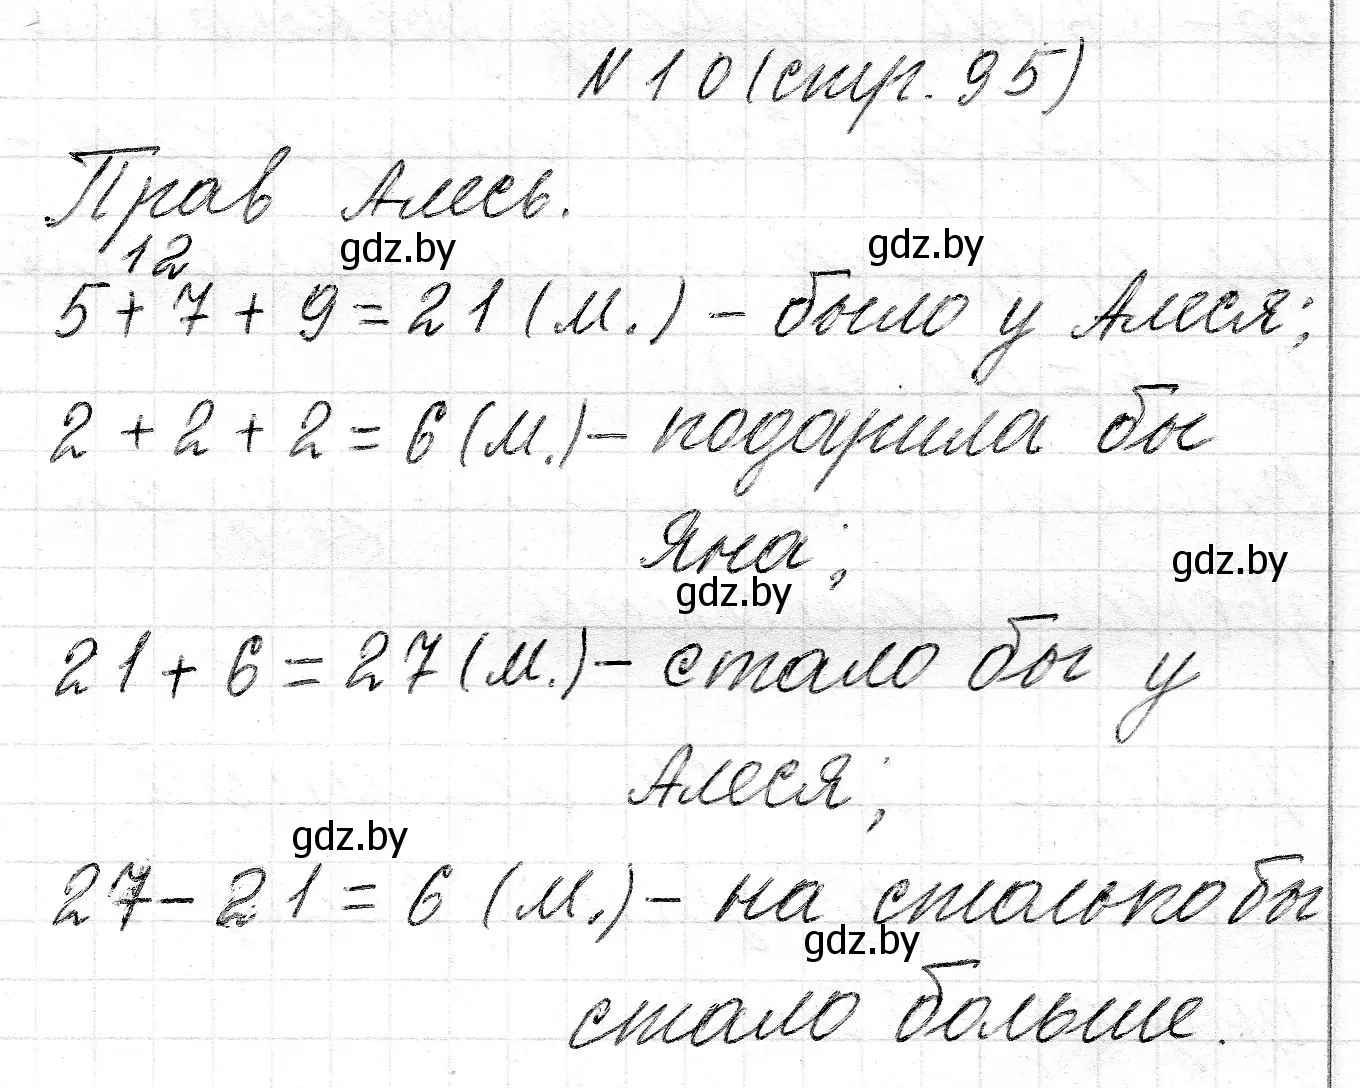 N 10 (стр. 95)
Прав Алесь.
12
gdz.by gdz.by
5 + 7 + 9 = 21 (м.) – было у Алеся;
2 + 2 + 2 = 6 (м.) – подарила бы
Яна;
gdz.by
gdz.by
21 + 6 = 27 (м.) – стало бы у
Алеся;
gdz.by
27 – 21 = 6 (м.) – на столько бы
gdz.by
стало больше.